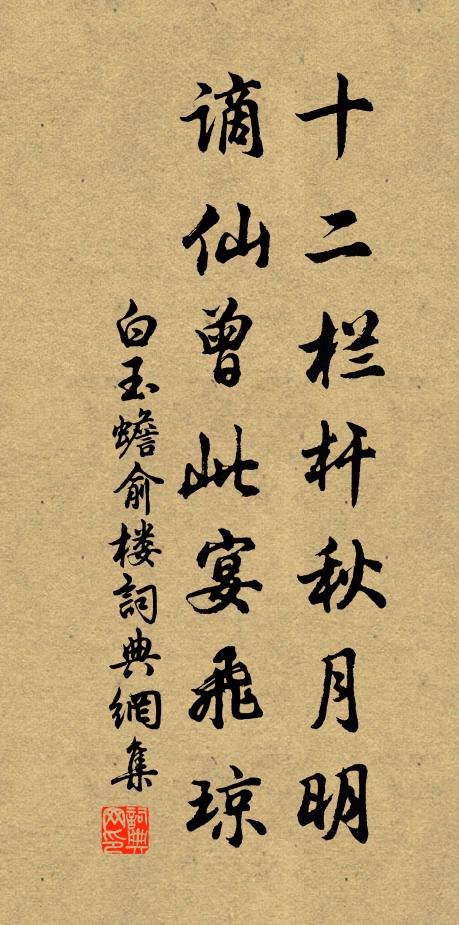 十二栏杆秋月明
谪仙曾此宴飛琼
白玉蟾俞楼詞典網集
詞典网印